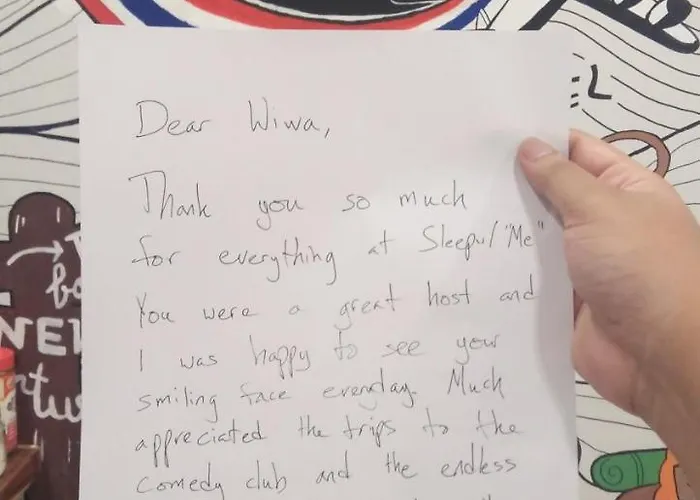 Dear Wiwa,
Thank you so much
for everything at Sleepul "Me"
You were a great host and
I was happy to see your
smiling face everyday. Much
appreciated the trips to the
comedy club and the endless
EL
NEW